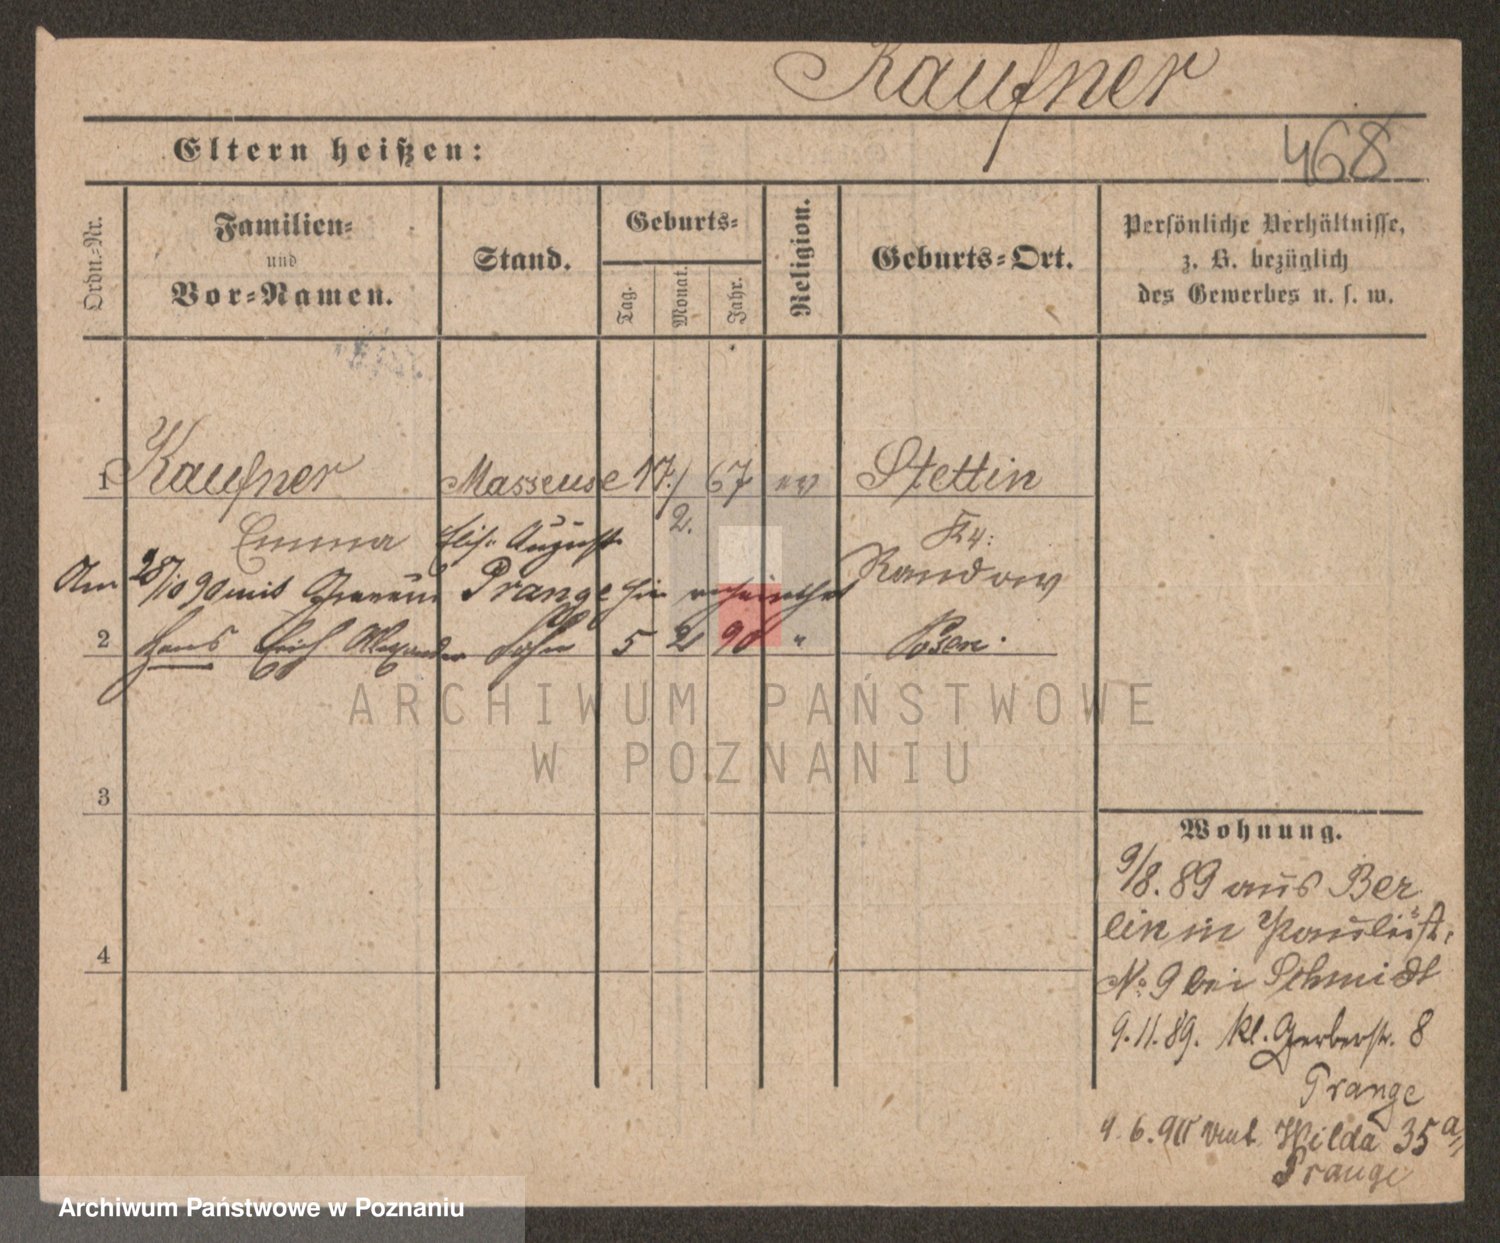 Kaufner
Eltern heißen:
468
Ordn.-Nr.
Familien-
und
Vor-Namen.
Stand.
Geburts-
Tag.
Monat.
Jahr.
Religion.
Geburts-Ort.
Persönliche Verhältnisse,
z. B. bezüglich
des Gewerbes u. s. w.
1 Kaufner Masseuse 17./ 67 ev Stettin
2.
Emma Elis. August Kr:
Randow
Am 28/10 90 mit Prange hier verheirathet
2 Hans Erich Alexander Sohn 5 2 90 " Posen.
3
4
Wohnung.
9/8. 89 aus Ber
lin in Paulist.
No 9 bei Schmidt
9.11.89. Kl. Gerberstr. 8
Prange
9.6.90 Wilda 35a
Prange
ARCHIWUM PAŃSTWOWE
W POZNANIU
Archiwum Państwowe w Poznaniu